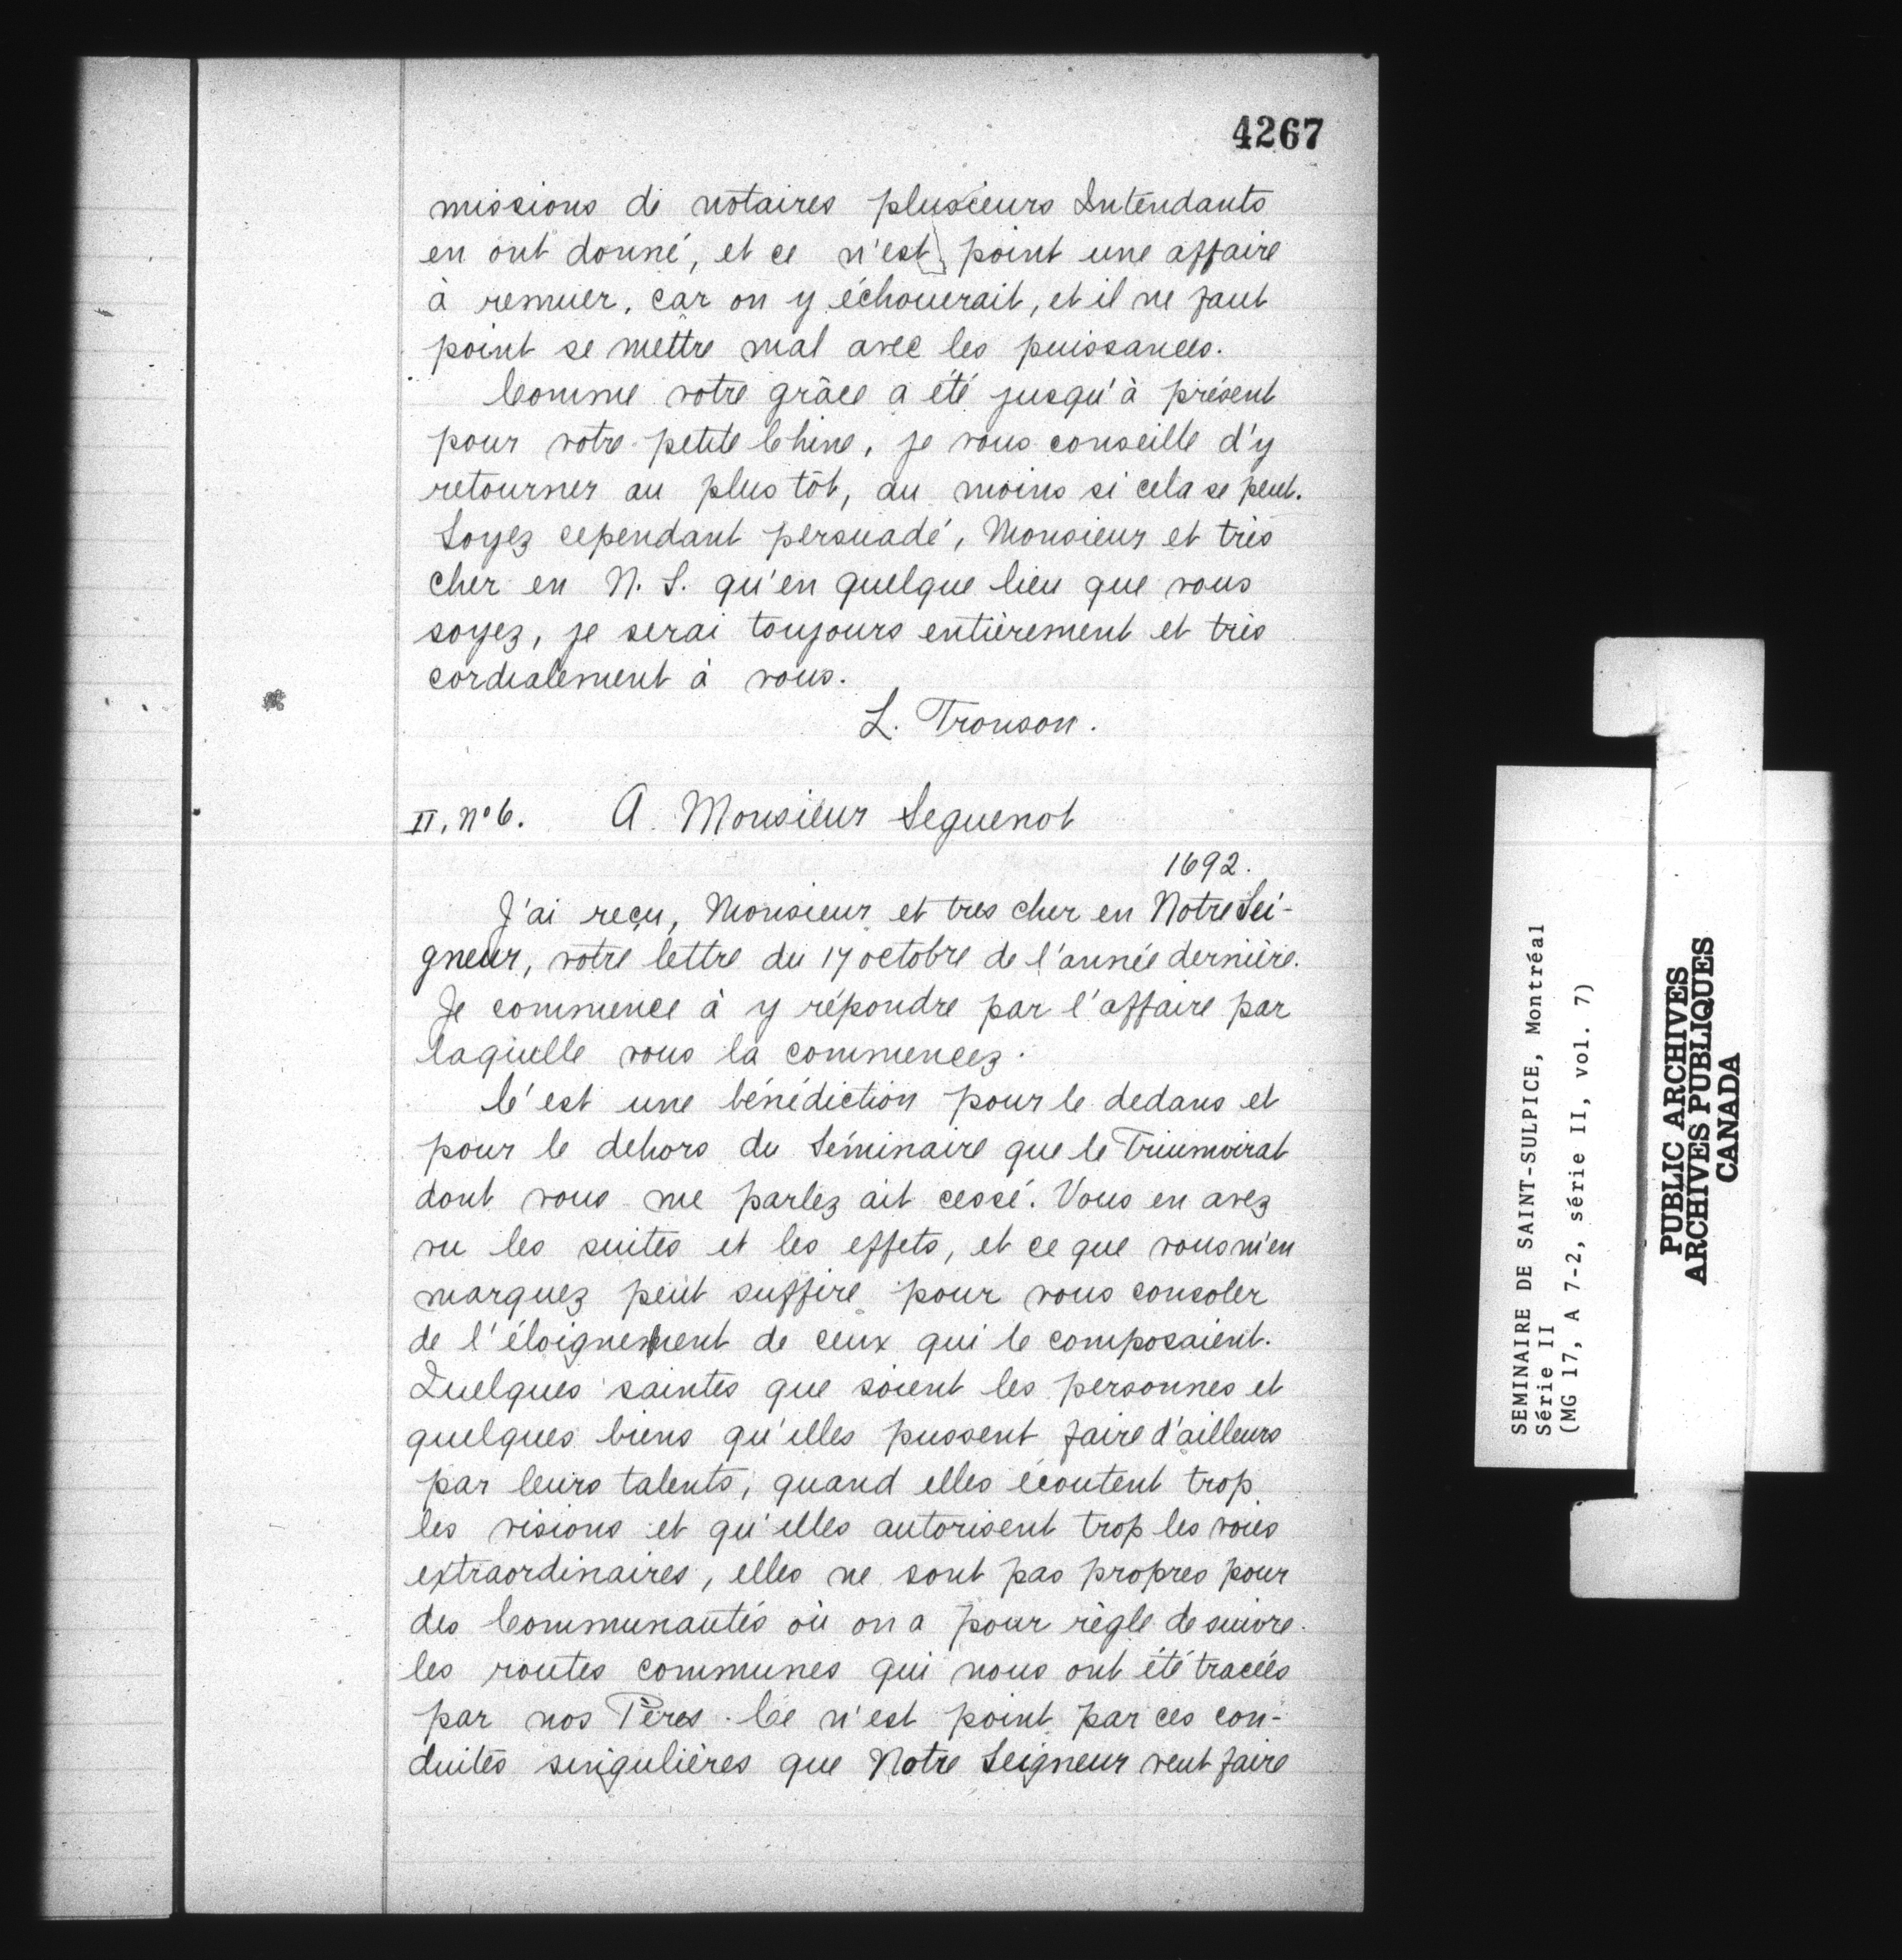 4267
missions de notaires plusieurs Intendants
en ont donné, et ce n'est point une affaire
à remuer, car on y échouerait, et il ne faut
point se mettre mal avec les puissances.
Comme votre grâce a été jusqu'à présent
pour votre petite Chine, je vous conseille d'y
retourner au plus tôt, au moins si cela se peut.
Soyez cependant persuadé, Monsieur et très
cher en N. S. qu'en quelque lieu que vous
soyez, je serai toujours entièrement et très
cordialement à vous.
L. Tronson.
II, No 6. A Monsieur Seguenot
1692.
J'ai reçu, Monsieur et tres cher en Notre Sei-
gneur, votre lettre du 17 octobre de l'année dernière.
Je commence à y répondre par l'affaire par
laquelle vous la commencez.
C'est une bénédiction pour le dedans et
pour le dehors du Séminaire que le Triumvirat
dont vous me parlez ait cessé. Vous en avez
vu les suites et les effets, et ce que vous m'en
marquez peut suffire pour vous consoler
de l'éloignement de ceux qui le composaient.
Quelques saintes que soient les personnes et
quelques biens qu'elles pussent faire d'ailleurs
par leurs talents, quand elles écoutent trop
les visions et qu'elles autorisent trop les voies
extraordinaires, elles ne sont pas propres pour
des Communautés où on a pour règle de suivre
les routes communes qui nous ont été tracées
par nos Pères. Ce n'est point par ces con-
duites singulières que Notre Seigneur veut faire
SEMINAIRE DE SAINT-SULPICE, Montréal
Série II
(MG 17, A 7-2, série II, vol. 7)
PUBLIC ARCHIVES
ARCHIVES PUBLIQUES
CANADA